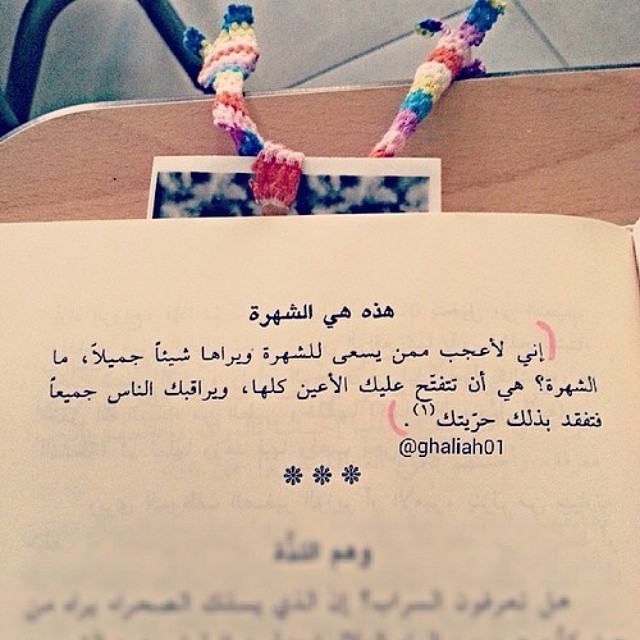 هذه هي الشهرة
إني لأعجب ممن يسعى للشهرة ويراها شيئاً جميلاً، ما
الشهرة؟ هي أن تتفتّح عليك الأعين كلها، ويراقبك الناس جميعاً
فتفقد بذلك حرّيتك(١).
@ghaliah01
***
وهم اللذّة
هل تعرفون السراب؟ إن الذي يسلك الصحراء يراه من